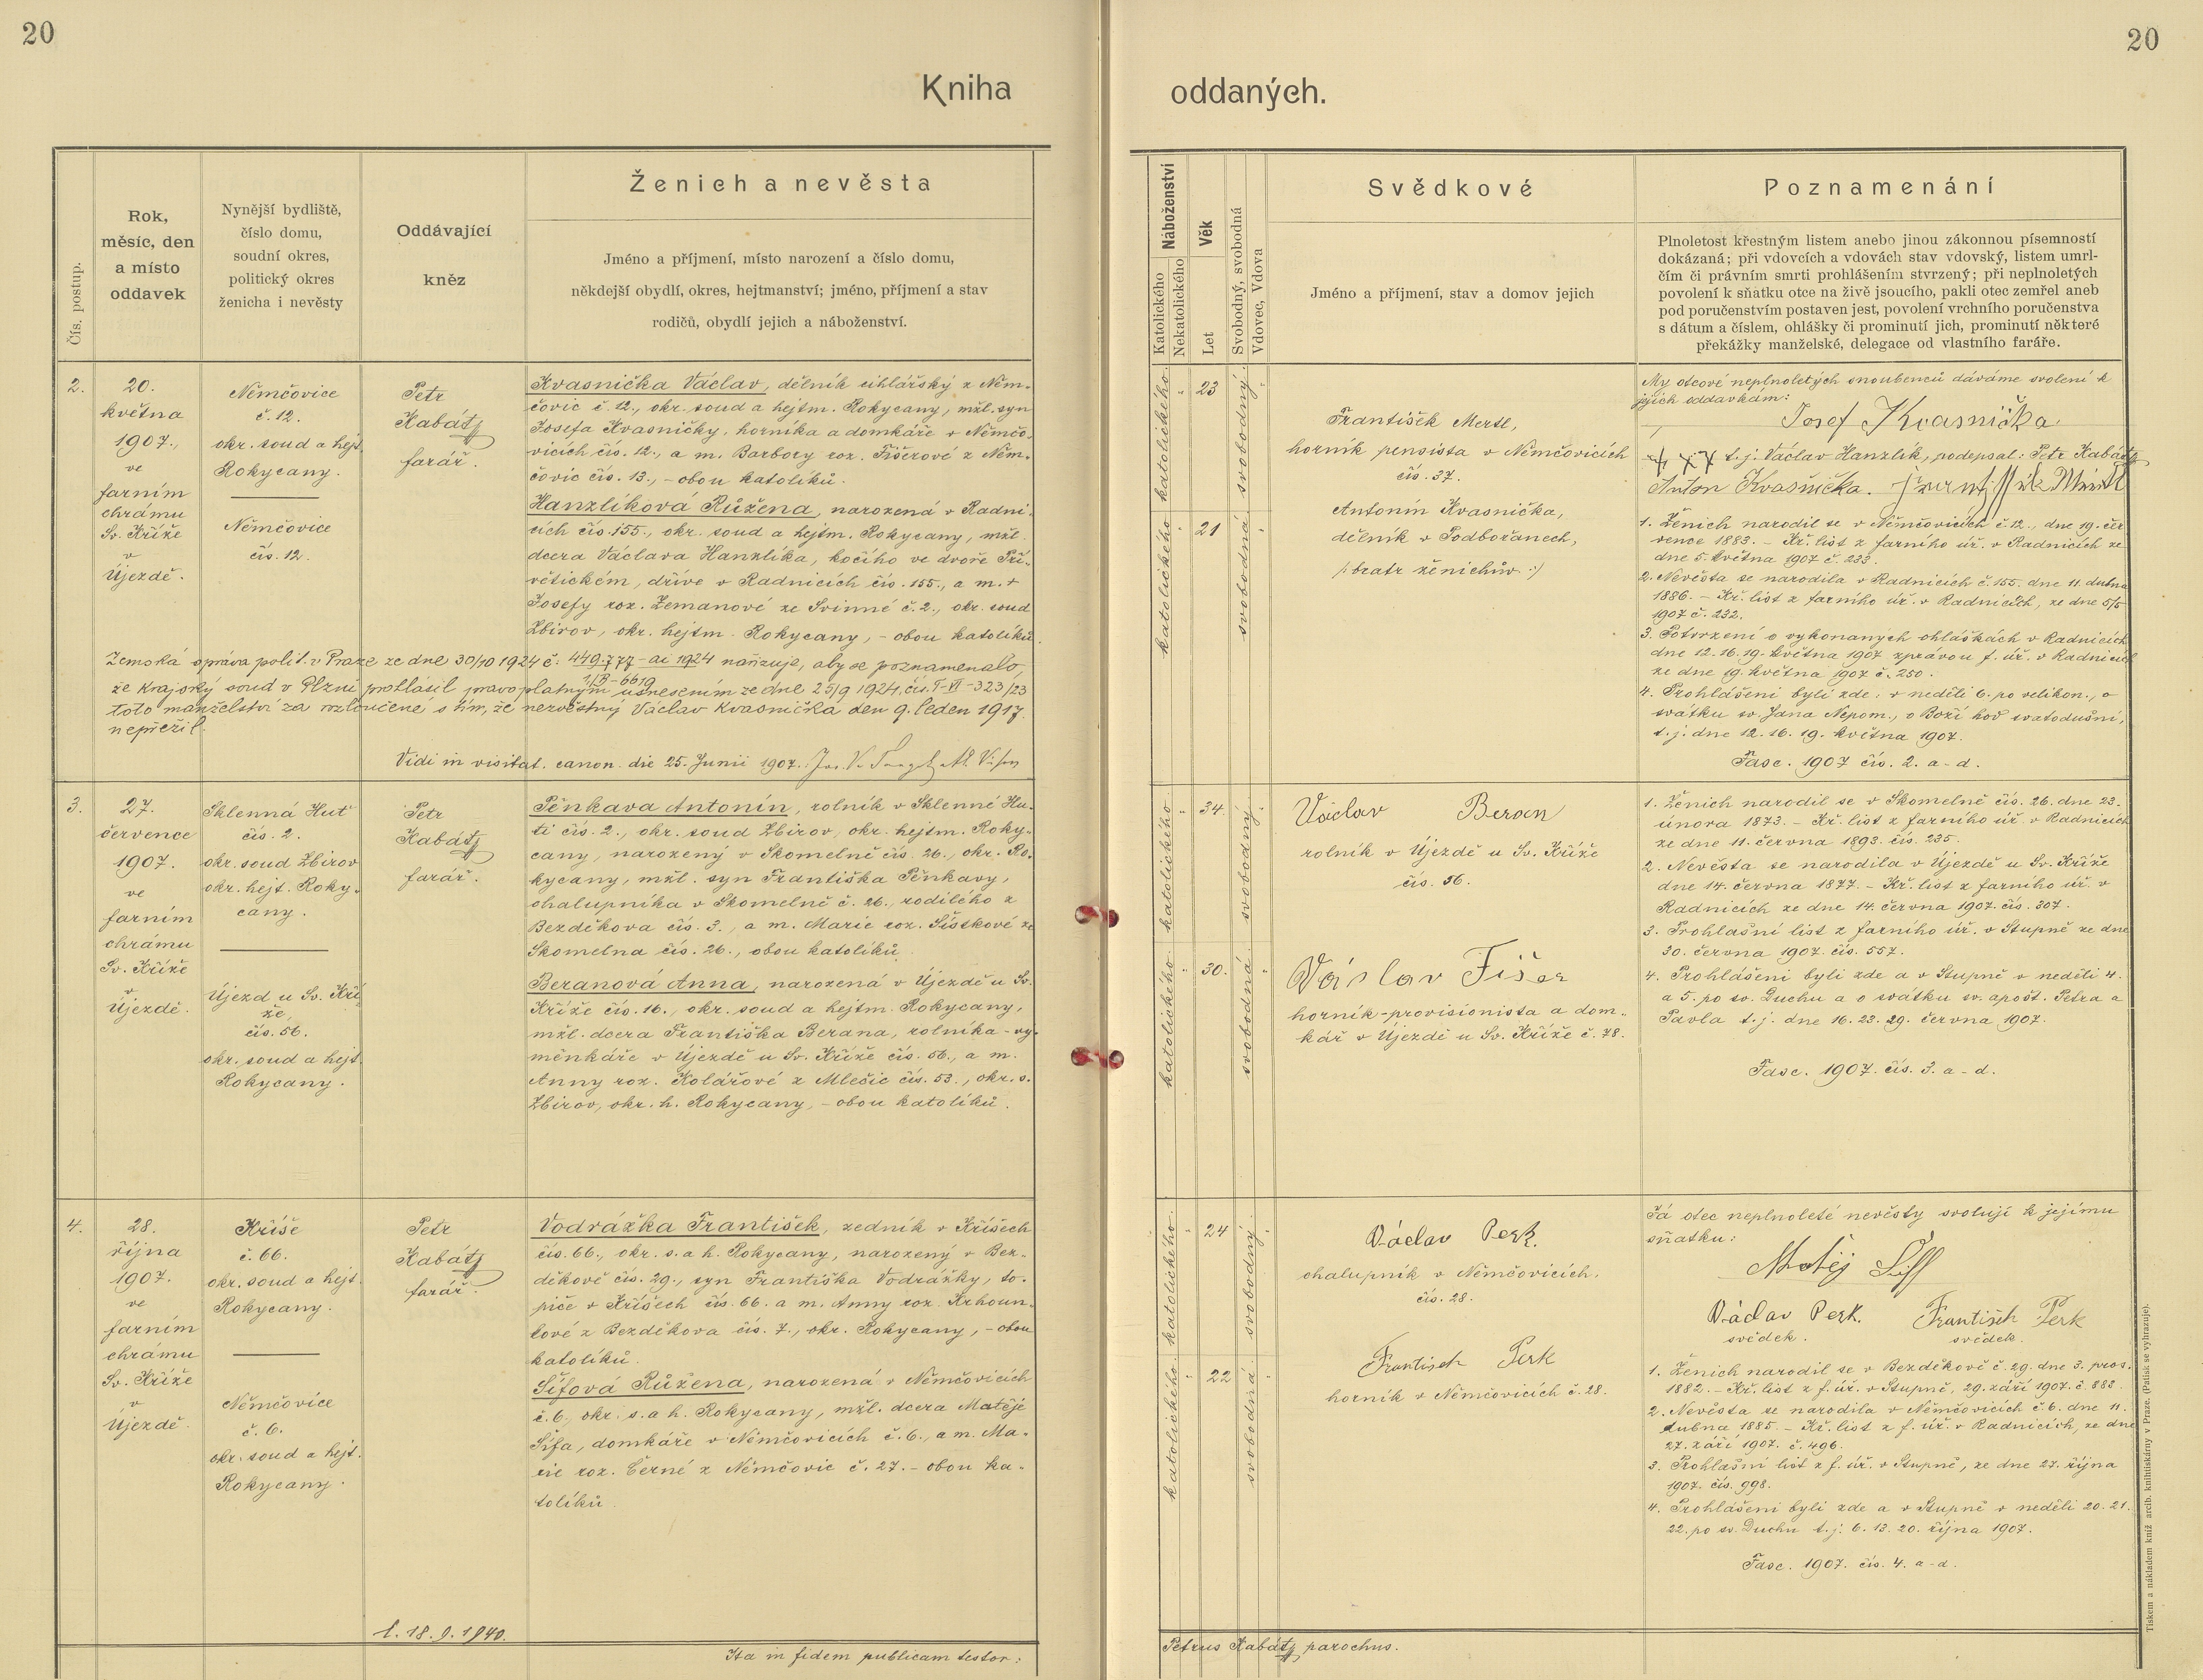 20
20
Kniha
oddaných.
Čís. postup.
Rok,
měsíc, den
a místo
oddavek
Nynější bydliště,
číslo domu,
soudní okres,
politický okres
ženicha i nevěsty
Oddávající
kněz
Ženich a nevěsta
Jméno a příjmení, místo narození a číslo domu,
někdejší obydlí, okres, hejtmanství; jméno, příjmení a stav
rodičů, obydlí jejich a náboženství.
Náboženství
Katolického
Nekatolického
Věk
Let
Svobodný, svobodná
Vdovec, Vdova
Svědkové
Jméno a příjmení, stav a domov jejich
Poznamenání
Plnoletost křestným listem anebo jinou zákonnou písemností
dokázaná; při vdovcích a vdovách stav vdovský, listem umrl-
čím či právním smrti prohlášením stvrzený; při neplnoletých
povolení k sňatku otce na živě jsoucího, pakli otec zemřel aneb
pod poručenstvím postaven jest, povolení vrchního poručenstva
s dátum a číslem, ohlášky či prominutí jich, prominutí některé
překážky manželské, delegace od vlastního faráře.
2.
20.
května
1907.,
ve
farním
chrámu
Sv. Kříže
v
Újezdě.
Němčovice
č. 12.
okr. soud a hejt.
Rokycany.
Němčovice
čís. 12.
Petr
Kabátj
farář.
Kvasnička Václav, dělník cihlářský z Něm-
čovic č. 12., okr. soud a hejtm. Rokycany, mžl. syn
Josefa Kvasničky, horníka a domkáře v Němčo-
vicích čís. 12., a m. Barbory roz. Fišerové z Něm-
čovic čís. 13., - obou katolíků.
Hanzlíková Růžena, narozená v Radni-
cích čís. 155., okr. soud a hejtm. Rokycany, mžl.
dcera Václava Hanzlíka, kočího ve dvoře Pří-
větickém, dříve v Radnicích čís. 155., a m. +
Josefy roz. Zemanové ze Svinné č. 2., okr. soud
Zbirov, okr. hejtm. Rokycany, - obou katolíků.
Zemská správa polit. v Praze ze dne 30/10 1924 č. 449.777 - ai 1924 nařizuje, aby se poznamenalo,
1/B - 6619
že Krajský soud v Plzni prohlásil pravoplatným usnesením ze dne 25/9 1924, čís. T-VI-323/23
toto manželství za rozloučené s tím, že nezvěstný Václav Kvasnička den 9. leden 1917.
nepřežil.
Vidi in visitat. canon. die 25. Junii 1907.
katolického
23
svobodný
katolického
21
svobodná
František Mertl,
horník pensista v Němčovicích
čís. 37.
Antonín Kvasnička,
dělník v Podbořanech,
/: bratr ženichův :/
My otcové neplnoletých snoubenců dáváme svolení k
jejich oddavkám:
Josef Kvasnička
+++ t. j. Václav Hanzlík, podepsal: Petr Kabátj
Anton Kvasnička.
1. Ženich narodil se v Němčovicích č. 12., dne 19. čer
vence 1883. - Kř. list z farního úř. v Radnicích ze
dne 5. května 1907 č. 233.
2. Nevěsta se narodila v Radnicích č. 155. dne 11. dubna
1886. - Kř. list z farního úř. v Radnicích, ze dne 5/5
1907 č. 232.
3. Potvrzení o vykonaných ohláškách v Radnicích
dne 12. 16. 19. května 1907 zprávou f. úř. v Radnicích
ze dne 19. května 1907 č. 250.
4. Prohlášeni byli zde: v neděli 6. po velikon., o
svátku sv. Jana Nepom., o Boží hod svatodušní,
t. j. dne 12. 16. 19. května 1907.
Fasc. 1907 čís. 2. a-d.
3.
27.
července
1907.
ve
farním
chrámu
Sv. Kříže
v
Újezdě.
Sklenná Huť
čís. 2.
okr. soud Zbirov
okr. hejt. Roky-
cany.
Újezd u Sv. Kří-
že,
čís. 56.
okr. soud a hejt.
Rokycany.
Petr
Kabátj
farář.
Pěnkava Antonín, rolník v Sklenné Hu-
ti čís. 2., okr. soud Zbirov, okr. hejtm. Roky-
cany, narozený v Skomelně čís. 26., okr. Ro-
kycany, mžl. syn Františka Pěnkavy,
chalupníka v Skomelně č. 26., rodilého z
Bezděkova čís. 3., a m. Marie roz. Šístkové ze
Skomelna čís. 26., obou katolíků.
Beranová Anna, narozená v Újezdě u Sv.
Kříže čís. 16., okr. soud a hejtm. Rokycany,
mžl. dcera Františka Berana, rolníka - vý-
měnkáře v Újezdě u Sv. Kříže čís. 56., a m.
Anny roz. Kolářové z Mlečic čís. 53., okr. s.
Zbirov, okr. h. Rokycany, - obou katolíků.
katolického
34.
svobodný
katolického
30.
svobodná
Václav Beran
rolník v Újezdě u Sv. Kříže
čís. 56.
Václav Fišer
horník-provisionista a dom-
kář v Újezdě u Sv. Kříže č. 78.
1. Ženich narodil se v Skomelně čís. 26. dne 23.
února 1873. - Kř. list z farního úř. v Radnicích
ze dne 11. června 1893. čís. 235.
2. Nevěsta se narodila v Újezdě u Sv. Kříže
dne 14. června 1877. - Kř. list z farního úř. v
Radnicích ze dne 14. června 1907. čís. 307.
3. Prohlašní list z farního úř. v Stupně ze dne
30. června 1907. čís. 557.
4. Prohlášeni byli zde a v Stupně v neděli 4.
a 5. po sv. Duchu a o svátku sv. apošt. Petra a
Pavla t. j. dne 16. 23. 29. června 1907.
Fasc. 1907. čís. 3. a-d.
4.
28.
října
1907.
ve
farním
chrámu
Sv. Kříže
v
Újezdě.
Kříše
č. 66.
okr. soud a hejt.
Rokycany.
Němčovice
č. 6.
okr. soud a hejt.
Rokycany.
Petr
Kabátj
farář.
Vodrážka František, zedník v Kříšech
čís. 66., okr. s. a h. Rokycany, narozený v Bez-
děkově čís. 29., syn Františka Vodrážky, to-
piče v Kříšech čís. 66. a m. Anny roz. Krhoun-
kové z Bezděkova čís. 7., okr. Rokycany, - obou
katolíků.
Šífová Růžena, narozená v Němčovicích
č. 6., okr. s. a h. Rokycany, mžl. dcera Matěje
Šífa, domkáře v Němčovicích č. 6., a m. Ma-
rie roz. Černé z Němčovic č. 27. - obou ka-
tolíků.
katolického
24
svobodný
katolického
22
svobodná
Václav Perk.
chalupník v Němčovicích,
čís. 28.
Frantisek Perk
horník v Němčovicích č. 28.
Já otec neplnoleté nevěsty svoluji k jejímu
sňatku:
Matěj Šiff
Václav Perk. František Perk
svědek. svědek.
1. Ženich narodil se v Bezděkově č. 29. dne 3. pros.
1882. - Kř. list z f. úř. v Stupně, 29. září 1907. č. 883.
2. Nevěsta se narodila v Němčovicích č. 6. dne 11.
dubna 1885. - Kř. list z f. úř. v Radnicích, ze dne
27. září 1907. č. 496.
3. Prohlašní list z f. úř. v Stupně, ze dne 27. října
1907. čís. 998.
4. Prohlášeni byli zde a v Stupně v neděli 20. 21.
22. po sv. Duchu t. j. 6. 13. 20. října 1907.
Fasc. 1907. čís. 4. a-d.
l. 18. 9. 1940.
Ita in fidem publicam testor:
Petrus Kabátj parochus.
Tiskem a nákladem kníž. arcib. knihtiskárny v Praze. (Patisk se vyhrazuje).